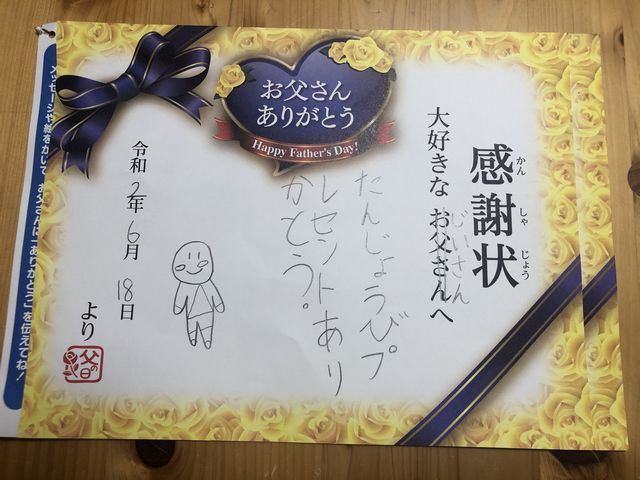 お父さん
ありがとう
Happy Father's Day!
感謝状
かん しゃ じょう
大好きな お父さんへ
じいさん
たんじょうびプ
レセントあり
かとう。
令和2年6月18日
より
父の日
メッセージや絵をかいて お父さんに「ありがとう」を伝えてね!